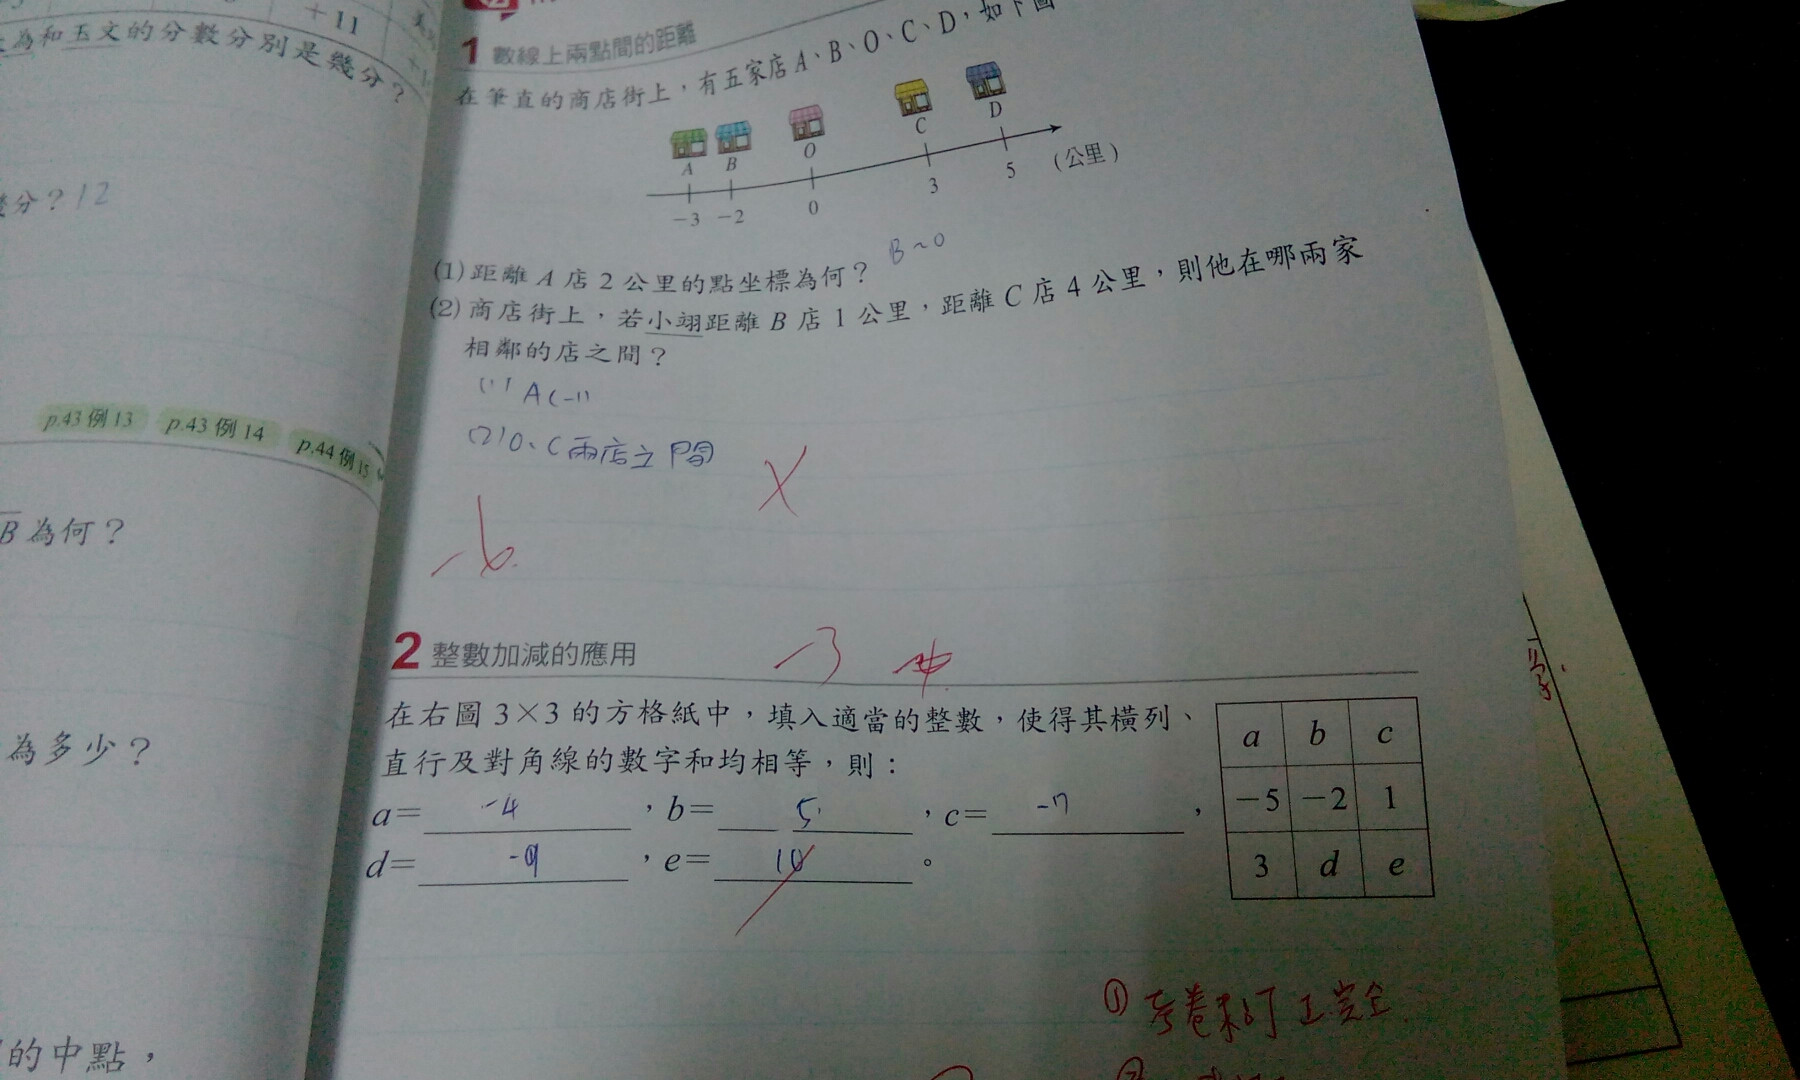 +11
為和玉文的分數分別是幾分？
幾分？12
p.43 例 13 p.43 例 14 p.44 例 15
B 為何？
為多少？
的中點，
1 數線上兩點間的距離
在筆直的商店街上，有五家店 A、B、O、C、D，如下圖
A B O C D
-3 -2 0 3 5 (公里)
(1) 距離 A 店 2 公里的點坐標為何？ B~0
(2) 商店街上，若小翊距離 B 店 1 公里，距離 C 店 4 公里，則他在哪兩家
相鄰的店之間？
(1) A(-1)
(2) O、C 兩店之間
-6
2 整數加減的應用
-3
在右圖 3×3 的方格紙中，填入適當的整數，使得其橫列、
直行及對角線的數字和均相等，則：
a= -4 ，b= 5 ，c= -7 ，
d= -9 ，e= 10 。
a b c
-5 -2 1
3 d e
① 考卷未訂正完全
②